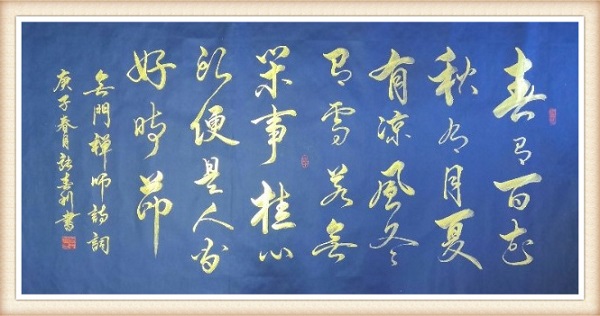 春有百花
秋有月夏
有凉風冬
有雪若無
閑事挂心
頭便是人間
好時節
無門禪師詩詞
庚子春月書